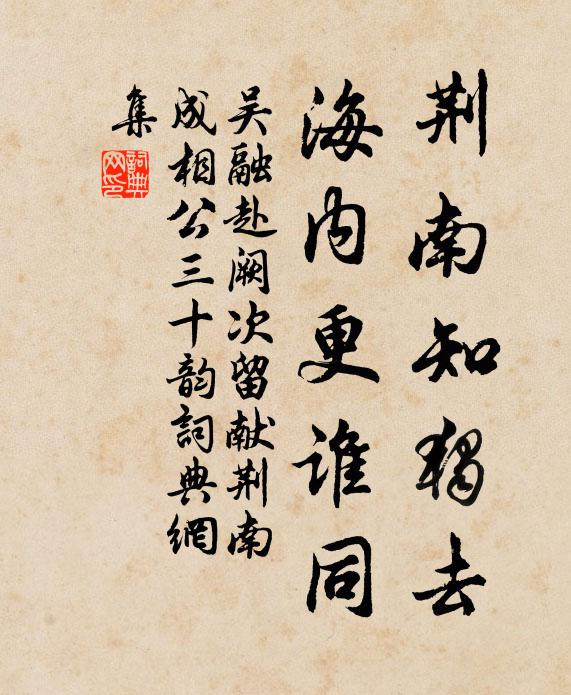 荆南知獨去
海内更誰同
吴融赴阙次留献荆南
成相公三十韵詞典網
集
詞典
网印